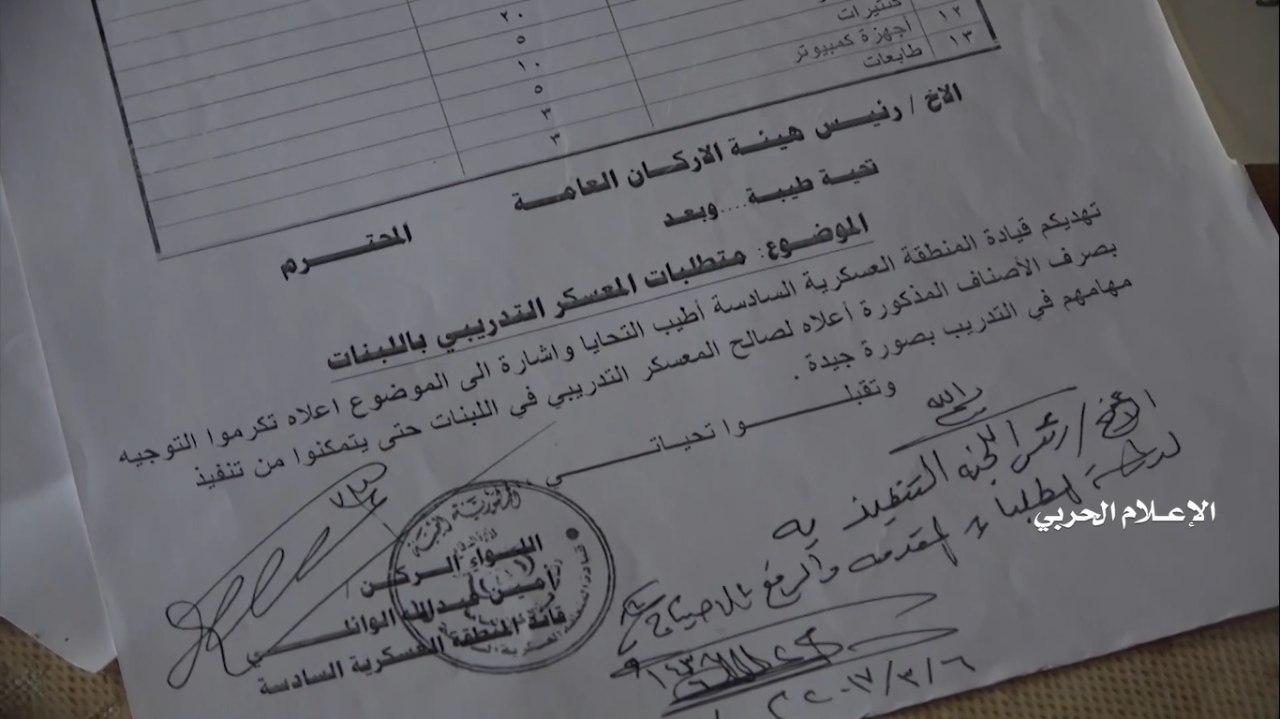 ٢٠
٥
١٢ كنتيرات ١٠
١٣ أجهزة كمبيوتر ٥
طابعات ٣
٣
الاخ / رئيس هيئة الاركان العامة المحترم
تحية طيبة....وبعد
الموضوع: متطلبات المعسكر التدريبي باللبنات
تهديكم قيادة المنطقة العسكرية السادسة أطيب التحايا واشارة الى الموضوع اعلاه تكرموا التوجيه
بصرف الأصناف المذكورة أعلاه لصالح المعسكر التدريبي في اللبنات حتى يتمكنوا من تنفيذ
مهامهم في التدريب بصورة جيدة .
وتقبلوا تحياتي
اللواء الركن
امين عبدالله الوائلي
قائد المنطقة العسكرية السادسة
الأخ / رئيس اللجنة التنفيذية
٢٠١٧/٣/٦
الإعلام الحربي